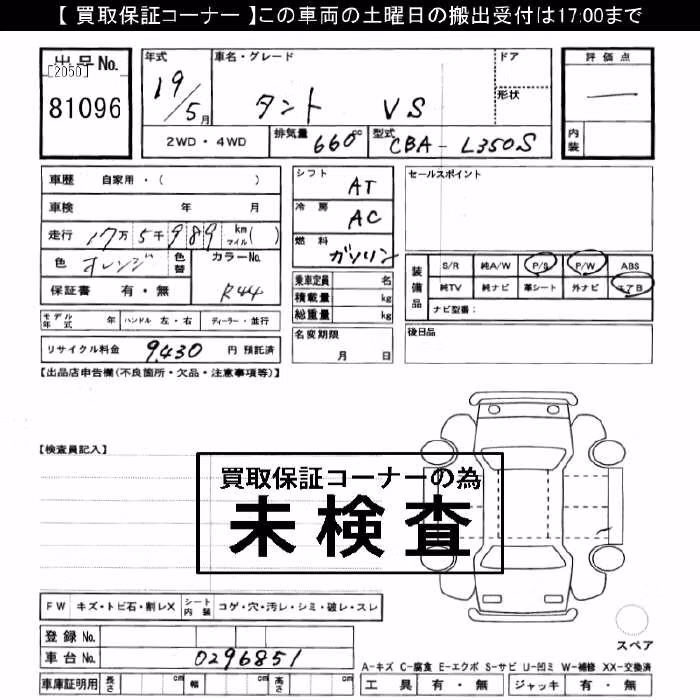 【 買取保証コーナー 】この車両の土曜日の搬出受付は17:00まで
出品No.
[2050]
81096
年式
19/5月
車名・グレード
タント VS
ドア
形状
評価点
—
内装
2WD・4WD
排気量 660 cc
型式 CBA-L350S
車歴 自家用・( )
車検 年 月
走行 17万 5千 989 km マイル( )
色 オレンジ
色替
カラーNo.
R44
保証書 有・無
モデル年式 年
ハンドル 左・右
ディーラー・並行
リサイクル料金 9,430 円 預託済
シフト AT
冷房 AC
燃料 ガソリン
乗車定員 名
積載量 kg
総重量 kg
名変期限
月 日
セールスポイント
装備品
S/R 純A/W P/S P/W ABS
純TV 純ナビ 革シート 外ナビ エアB
ナビ型番:
後日品
【出品店申告欄(不良箇所・欠品・注意事項等)】
【検査員記入】
買取保証コーナーの為
未検査
FW キズ・トビ石・割レX
シート内装 コゲ・穴・汚レ・シミ・破レ・スレ
登録No.
車台No. 0296851
車庫証明用 長さ cm 幅 cm 高さ cm
スペア
A-キズ C-腐食 E-エクボ S-サビ U-凹ミ W-補修 XX-交換済
工具 有・無 ジャッキ 有・無